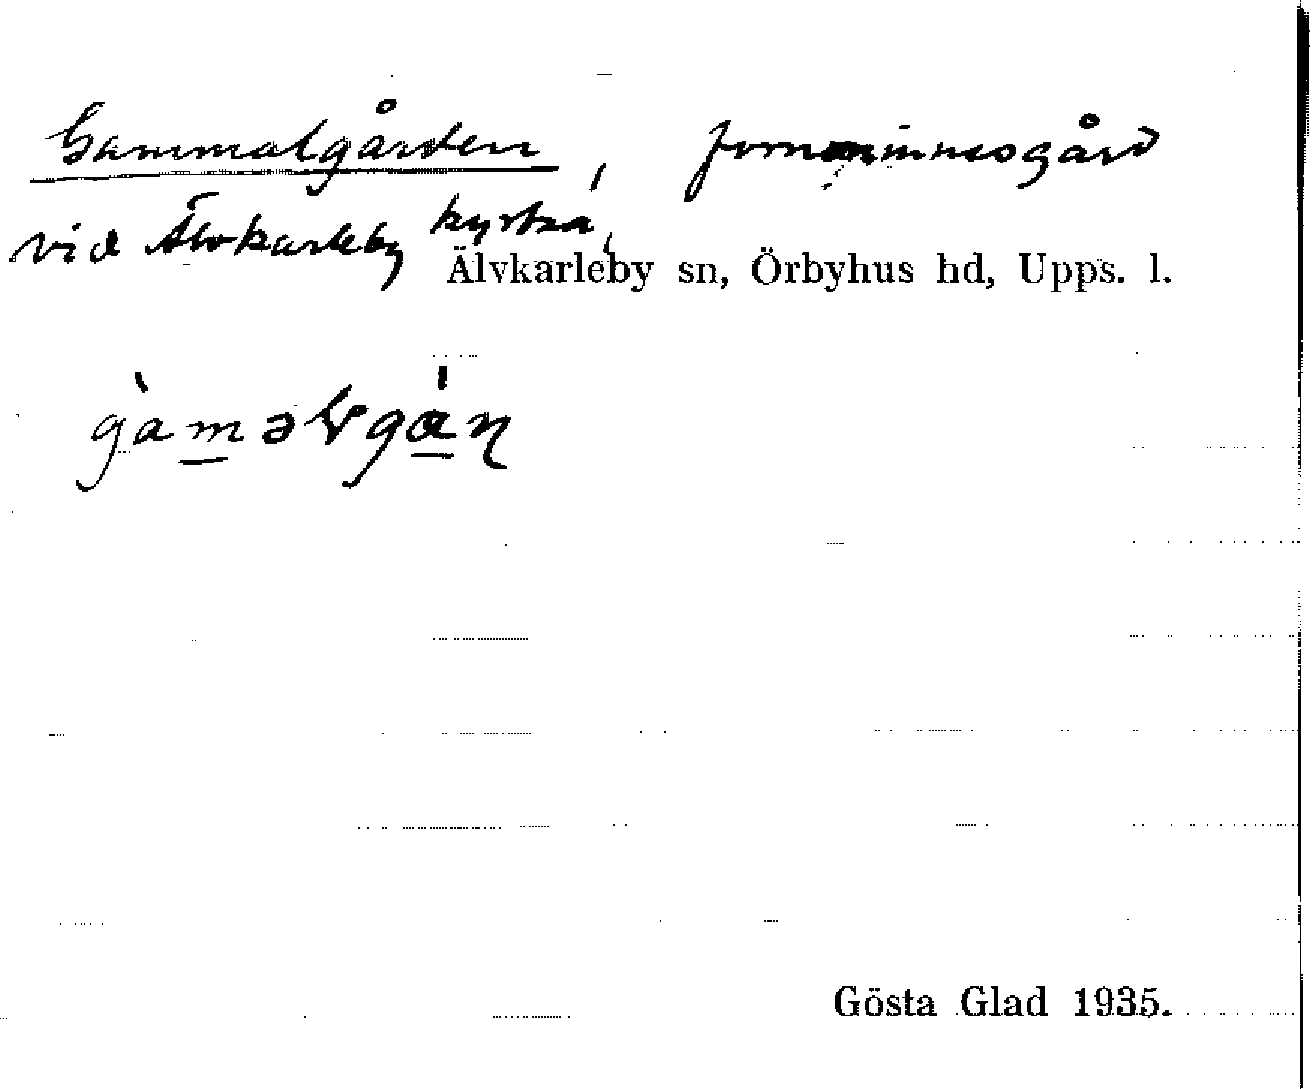 Gammalgården, fornminnesgård
vid Älvkarleby kyrka,
Älvkarleby sn, Örbyhus hd, Upps. l.
Gösta Glad 1935.